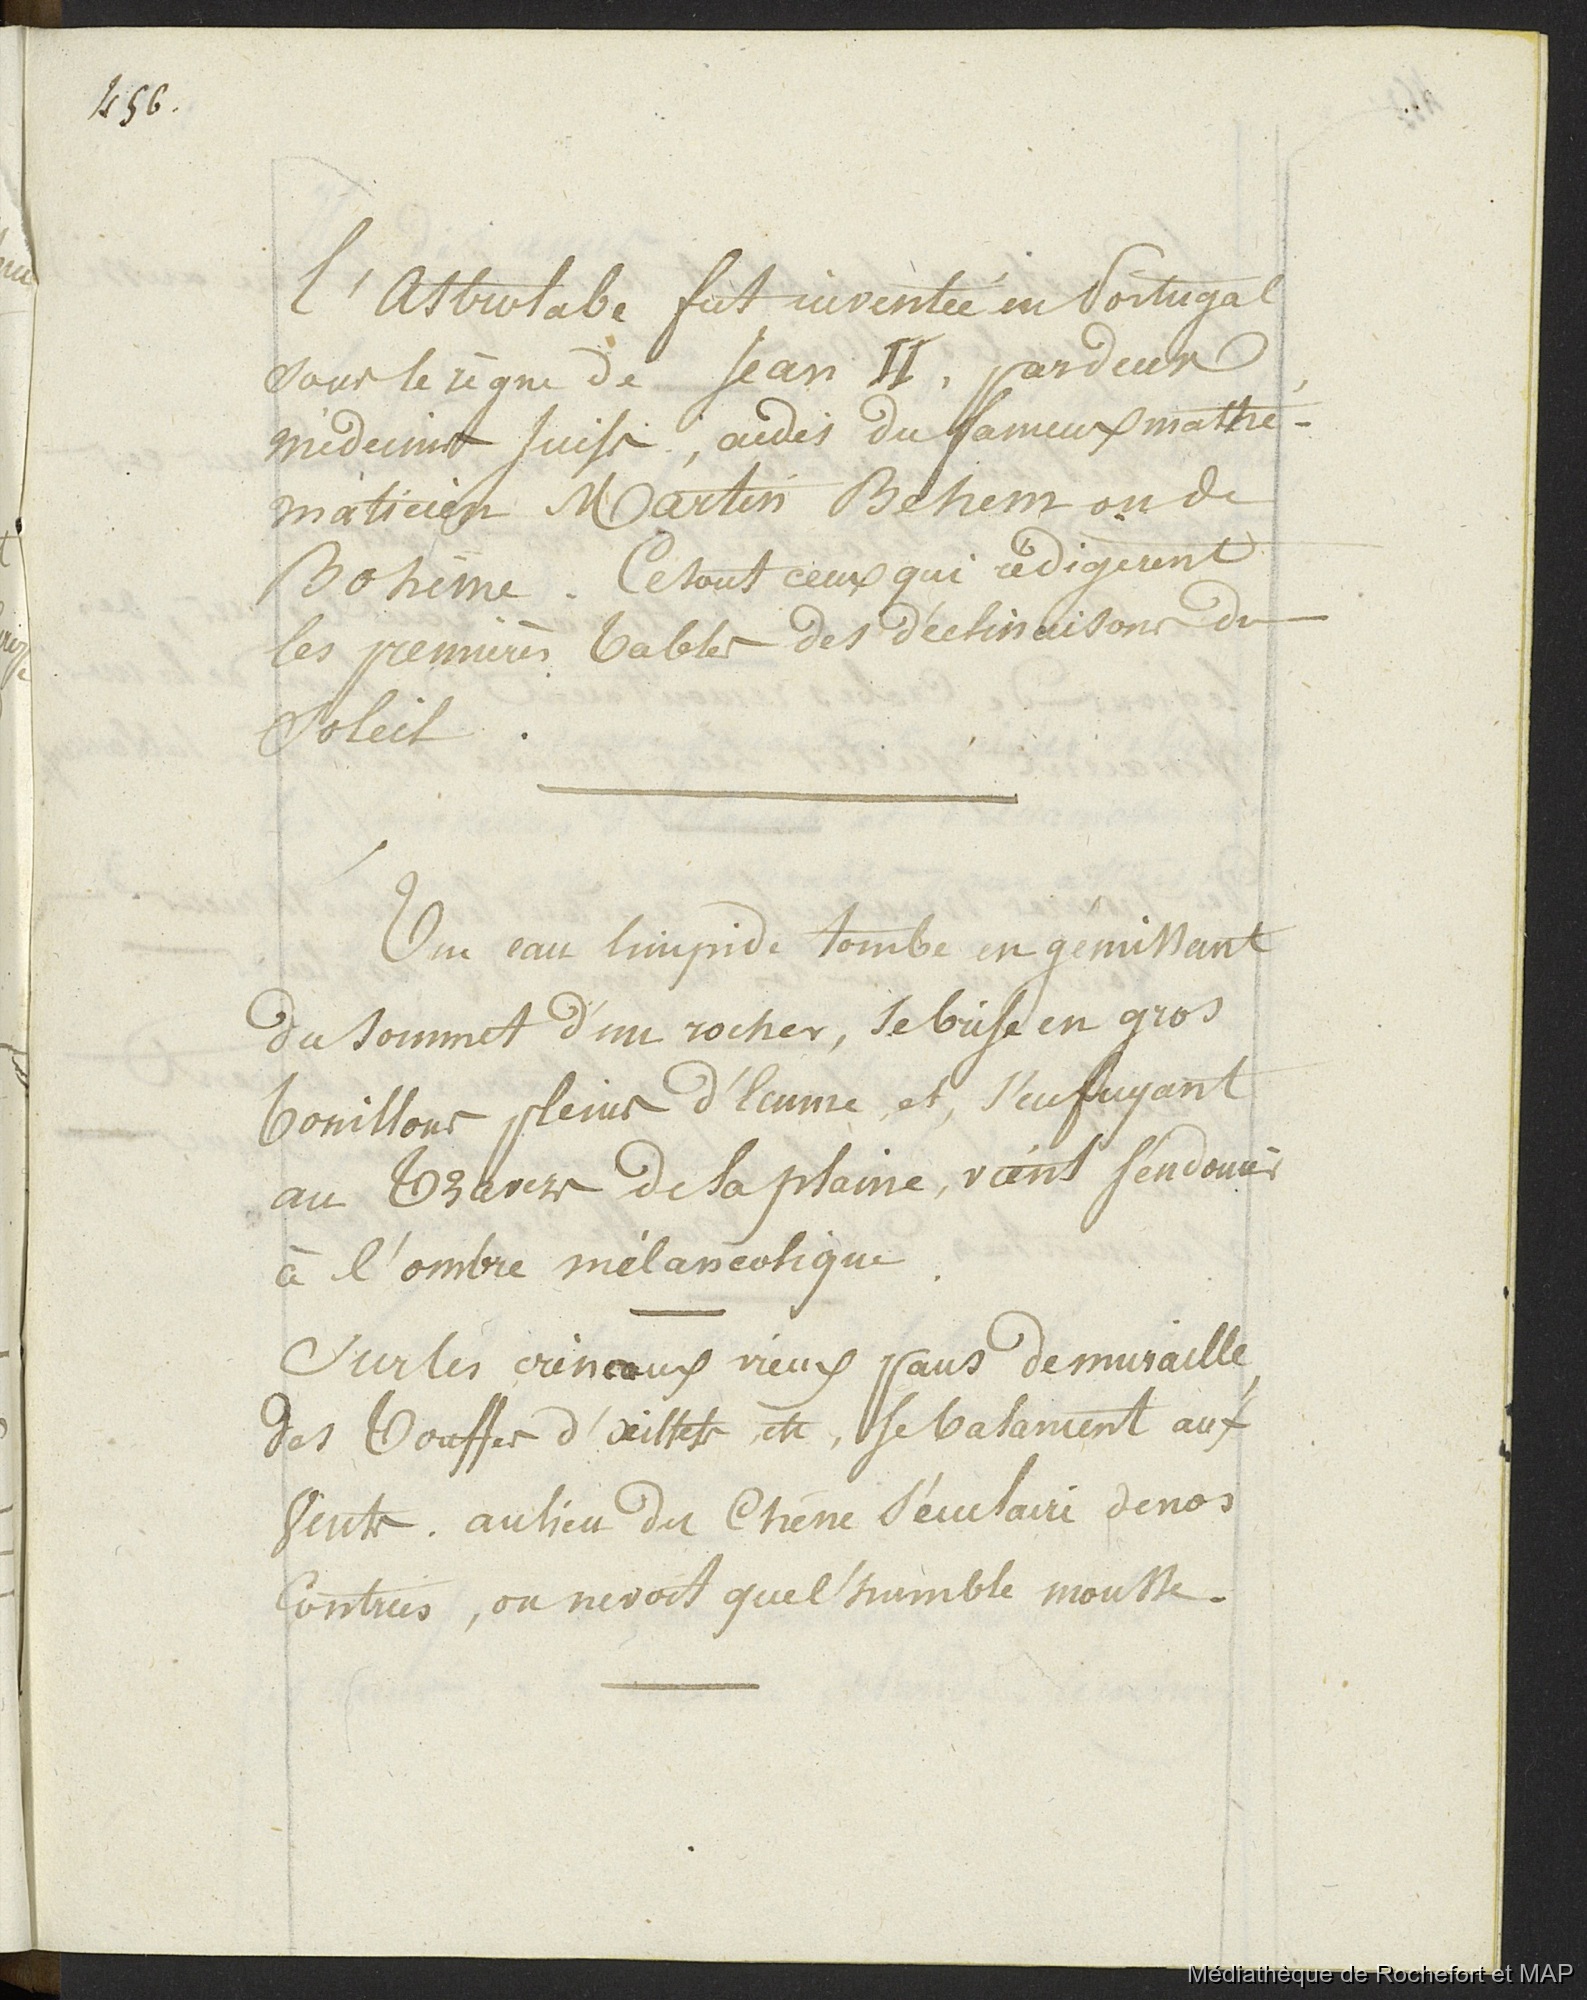 456.
l'Astrolabe fut inventée en Portugal
sous le règne de Jean II, par deux
médecins suifs, aidés du fameux mathé-
maticien Martin Behem ou de
Bohème. Ce sont ceux qui rédigèrent
les premières tables des déclinaisons du
Soleil.
Une eau limpide tombe en gémissant
du sommet d'un rocher, se brise en gros
bouillons pleins d'écume et, s'enfuyant
au travers de la plaine, vient s'endormir
à l'ombre mélancolique.
Sur les créneaux vieux pans de muraille,
des touffes d'œillets etc, se balancent aux
Vents. au lieu du Chêne séculaire de nos
Contrées, on ne voit que l'humble mousse.
Médiathèque de Rochefort et MAP